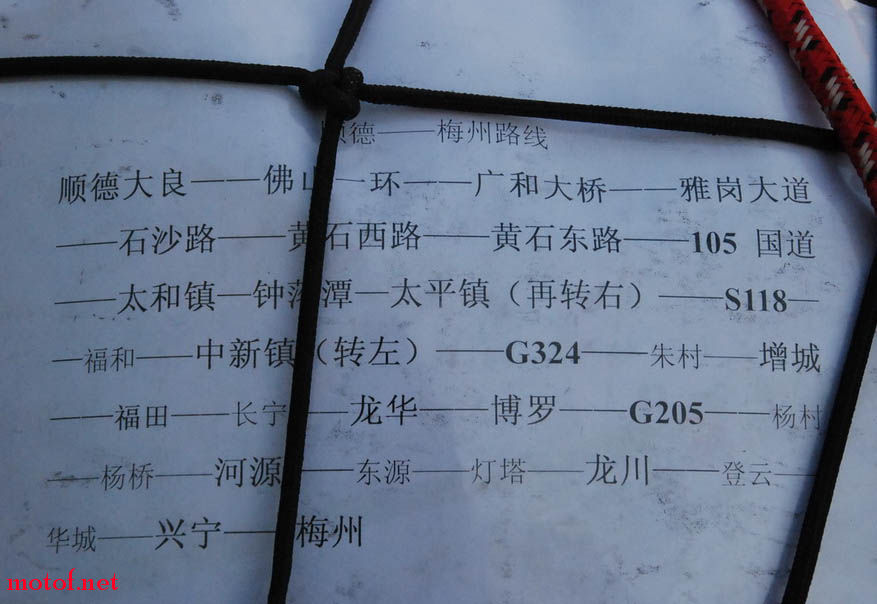 顺德——梅州路线
顺德大良——佛山一环——广和大桥——雅岗大道
——石沙路——黄石西路——黄石东路——105 国道
——太和镇—钟落潭—太平镇（再转右）——S118—
—福和——中新镇（转左）——G324——朱村——增城
——福田——长宁——龙华——博罗——G205——杨村
——杨桥——河源——东源——灯塔——龙川——登云—
华城——兴宁——梅州
motof.net